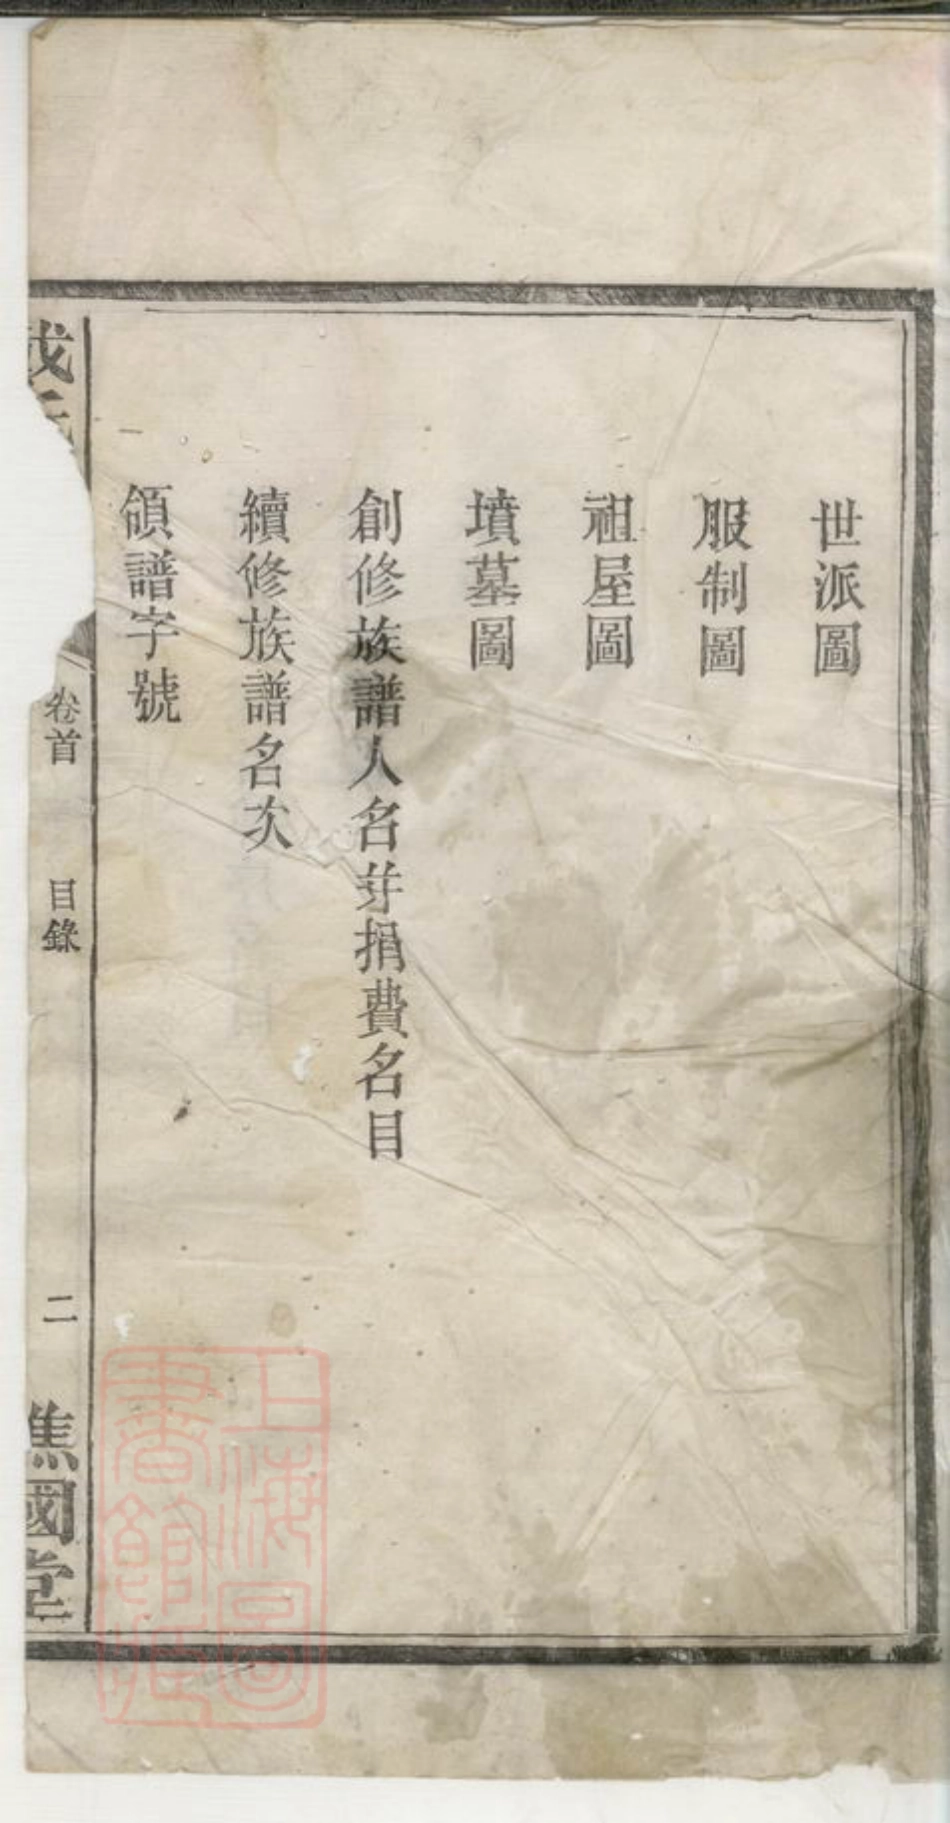 世派圖
服制圖
祖屋圖
墳墓圖
創修族譜人名并捐費名目
續修族譜名次
領譜字號
卷首
目錄
二
國堂
上海圖
書館藏